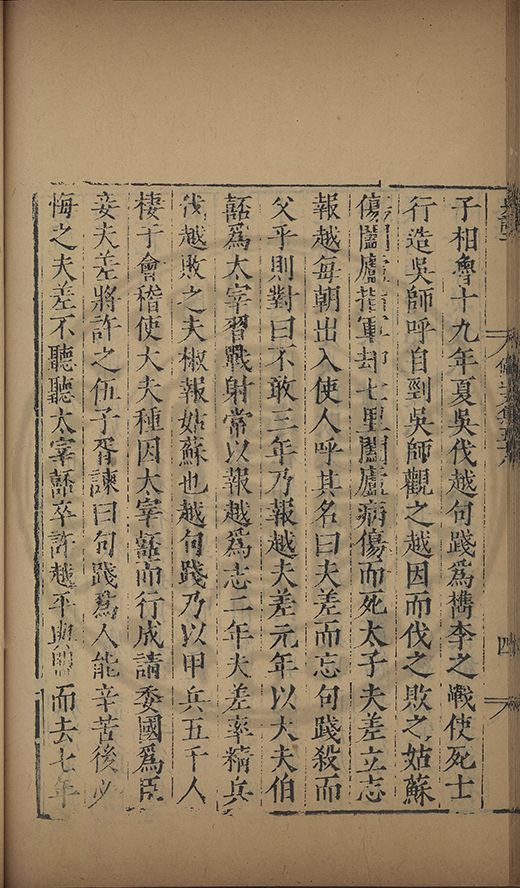 子相魯十九年夏吳伐越句踐爲檇李之戰使死士
行造吳師呼自剄吳師觀之越因而伐之敗之姑蘇
傷闔廬指軍却七里闔廬病傷而死太子夫差立志
報越每朝出入使人呼其名曰夫差而忘句踐殺而
父乎則對曰不敢三年乃報越夫差元年以大夫伯
嚭爲太宰習戰射常以報越爲志二年夫差率精兵
伐越敗之夫椒報姑蘇也越句踐乃以甲兵五千人
棲于會稽使大夫種因太宰嚭而行成請委國爲臣
妾夫差將許之伍子胥諫曰句踐爲人能辛苦後必
悔之夫差不聽聽太宰嚭卒許越平與盟而去七年
四